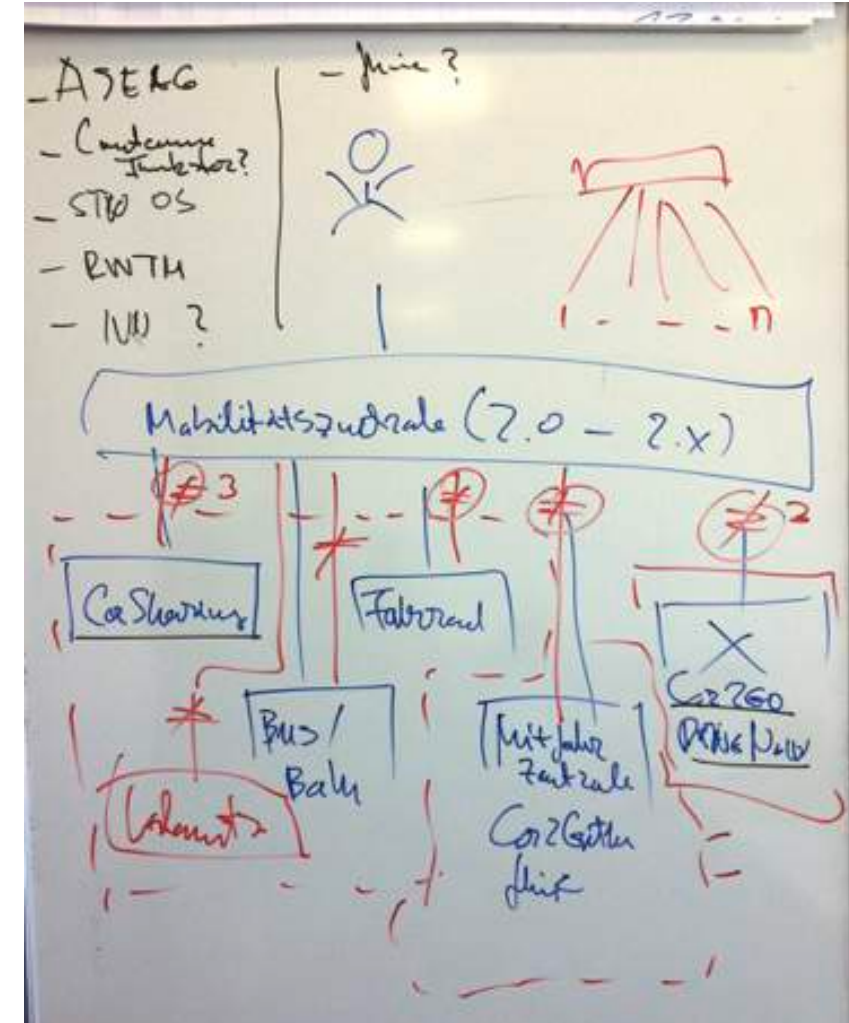 - ASEAG
- STW OS
- RWTH
- IVU ?
1 - - - n
Mobilitätszentrale (2.0 - 2.x)
≠ 3
≠
≠
≠ 2
≠
CarSharing
Fahrrad
X
Car2Go
DRIVE Now
≠
Bus /
Bahn
Mitfahr
Zentrale
Car2Gether
flinc
Ladenetz